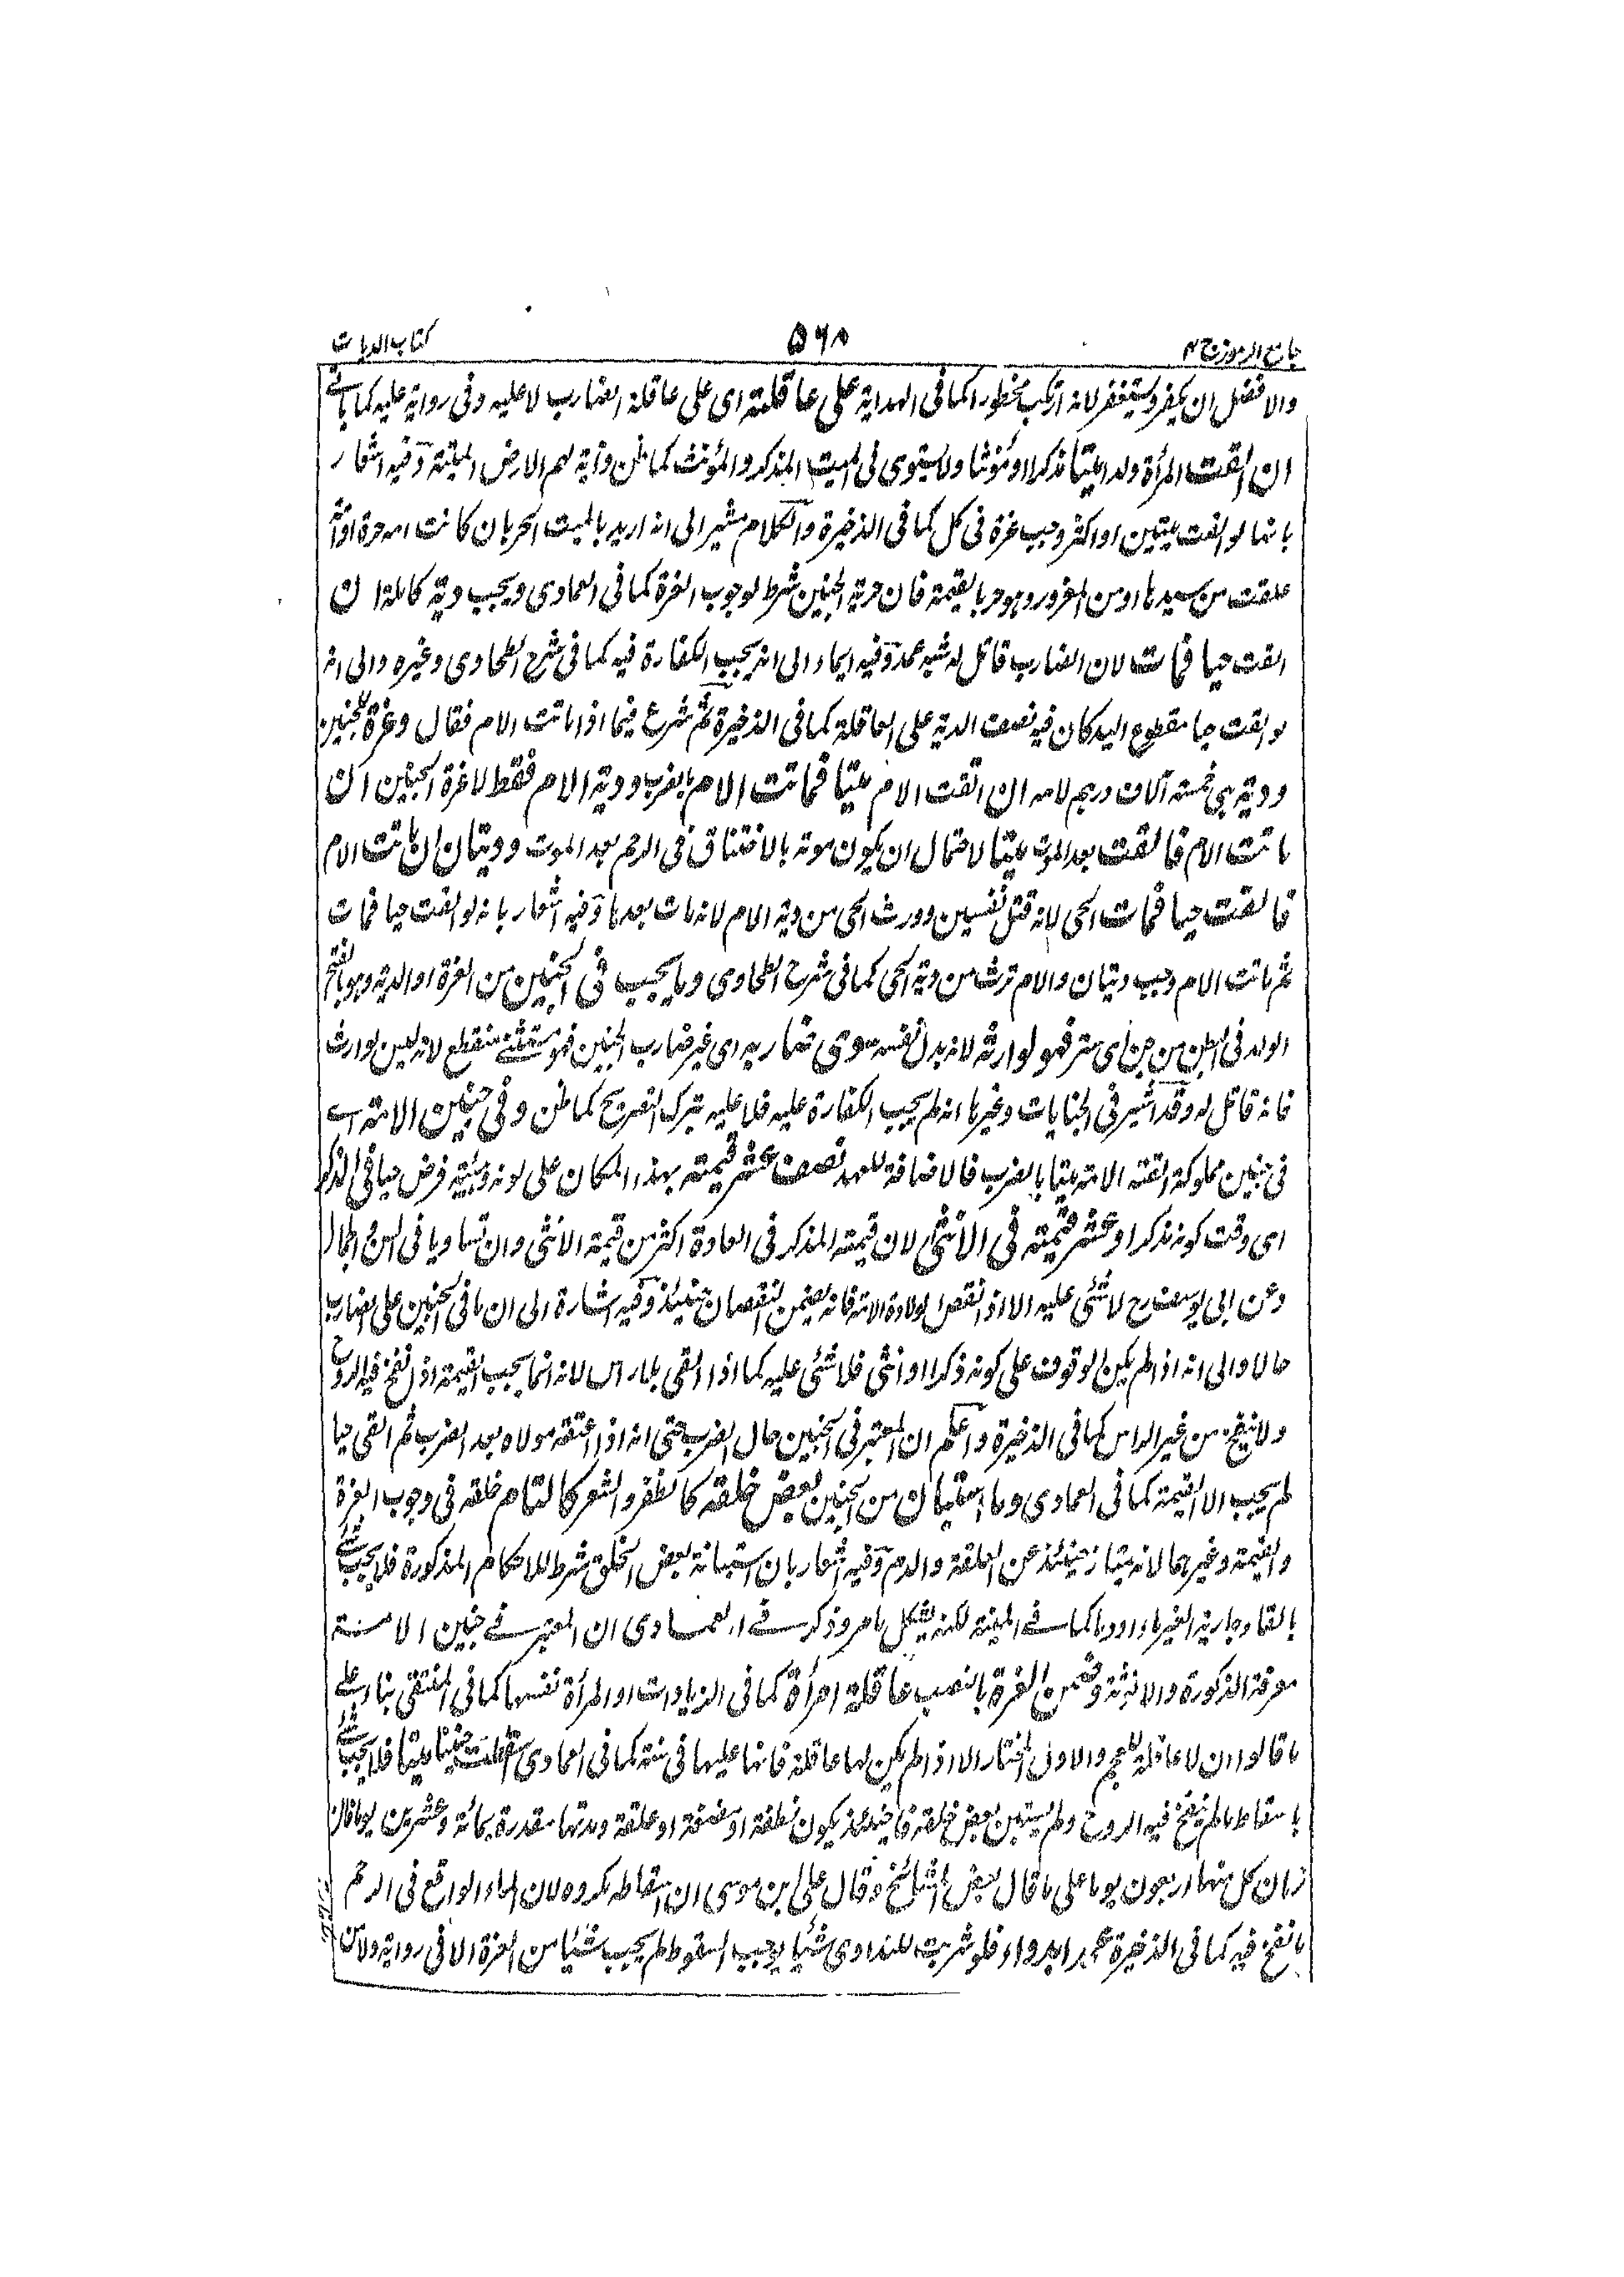 جامع الرموز ج ۲ ۵۶۸ كتاب الديات
والافضل ان يكفر ويستغفر لانه ارتكب محظورا كما فى الهداية على عاقلته اى على عاقلة الضارب لا عليه وفى رواية عليه كما ياتى
ان القت المرأة ولدا ميتا مذكرا او مؤنثا ولا يستوى فى الميت المذكر والمؤنث كما ظن وآية لهم الارض الميتة وفيه اشعار
بانها لو القت ميتين او اكثر وجب غرة فى كل كما فى الذخيرة والكلام مشير الى انه اريد بالميت الحر بان كانت امه حرة او امة
علقت من سيدها او من المغرور وهو حر بالقيمة فان حرية الجنين شرط لوجوب الغرة كما فى العمادى ويجب دية كاملة ان
القت حيا فمات لان الضارب قاتل له شبه عمد وفيه ايماء الى انه يجب الكفارة فيه كما فى شرح الطحاوى وغيره والى انه
لو القت حيا مقطوع اليد كان فيه نصف الدية على العاقلة كما فى الذخيرة ثم شرع فيما اذا ماتت الام فقال وغرة للجنين
ودية هى خمسة آلاف درهم لامه ان القت الام ميتا فماتت الام بالضرب ودية الام فقط لا غرة الجنين ان
ماتت الام فالقت بعد الموت ميتا لاحتمال ان يكون موته بالاختناق فى الرحم بعد الموت وديتان ان ماتت الام
فالقت حيا فمات الحى لانه قتل نفسين وورث الحى من دية الام لانه مات بعدها وفيه اشعار بانه لو القت حيا فمات
ثم ماتت الام وجب ديتان والام ترث من دية الحى كما فى شرح الطحاوى وما يجب فى الجنين من الغرة او الدية وهو بالفتح
الولد فى البطن من جن اى ستر فهو لوارثه لانه بدل نفسه سوى ضاربه اى غير ضارب الجنين فهو مستثنى منقطع لانه ليس لوارث
فانه قاتل له وقد اشير فى الجنايات وغيرها انه لم يجب الكفارة عليه فلا عليه بترك التصريح كما ظن وفى جنين الامة اے
فى جنين مملوكة القته الامة ميتا بالضرب فالاضافة للعهد نصف عشر قيمته بهذا المكان على لونه وهيئته فرض حيا فى الذكر
اى وقت كونه مذكرا وعشر قيمته فى الانثى لان قيمة المذكر فى العادة اكثر من قيمة الانثى وان تساويا فى السن والجمال
وعن ابى يوسف رح لا شئى عليه الا اذا نقص لولادة الامة فانه يضمن النقصان حينئذ وفيه اشارة الى ان ما فى الجنين على الضارب
حالا والى انه اذا لم يكن الوقوف على كونه ذكرا او انثى فلا شئى عليه كما اذا القى بلا راس لانه انما يجب القيمة اذا نفخ فيه الروح
ولا ينفخ من غير الراس كما فى الذخيرة واعلم ان المعتبر فى الجنين حال الضرب حتى انه اذا اعتقه مولاه بعد الضرب ثم القى حيا
لم يجب الا القيمة كما فى العمادى وما استبان من الجنين بعض خلقه كالظفر والشعر كالتام خلقه فى وجوب الغرة
والقيمة وغيرهما لانه يمتاز حينئذ عن العلقة والدم وفيه اشعار بان استبانة بعض الخلق شرط للاحكام المذكورة فلا يجب شئے
بالقاء جارية الغير ماء او دما كما فے المنية لكنه يشكل بما مر وذكر فے العمادى ان المعتبر فے جنين الامة
معرفة الذكورة والانوثة وضمن الغرة بالنصب عاقلة امرأة كما فى الزيادات او المرأة نفسها كما فى المنتقى بناء على
ما قالوا ان لا عاقلة للعجم والاول المختار الا اذا لم يكن لها عاقلة فانها عليها فى سنة كما فى العمادى اسقطت جنينا ميتا فلا يجب شئے
باسقاط ما لم ينفخ فيه الروح ولم يستبن بعض خلقه فانه حينئذ يكون نطفة او مضغة او علقة ومدتها مقدرة بمائة وعشرين يوما فان
زمان كل منها اربعون يوما على ما قال بعض المشائخ وقال على بن موسى ان اسقاطه مكروه لان الماء الواقع فى الرحم
ما نفخ فيه كما فى الذخيرة عمدا بدواء فلو شربت للتداوى شئيا يوجب السقوط لم يجب شئيا من الغرة الا فى رواية ولا من